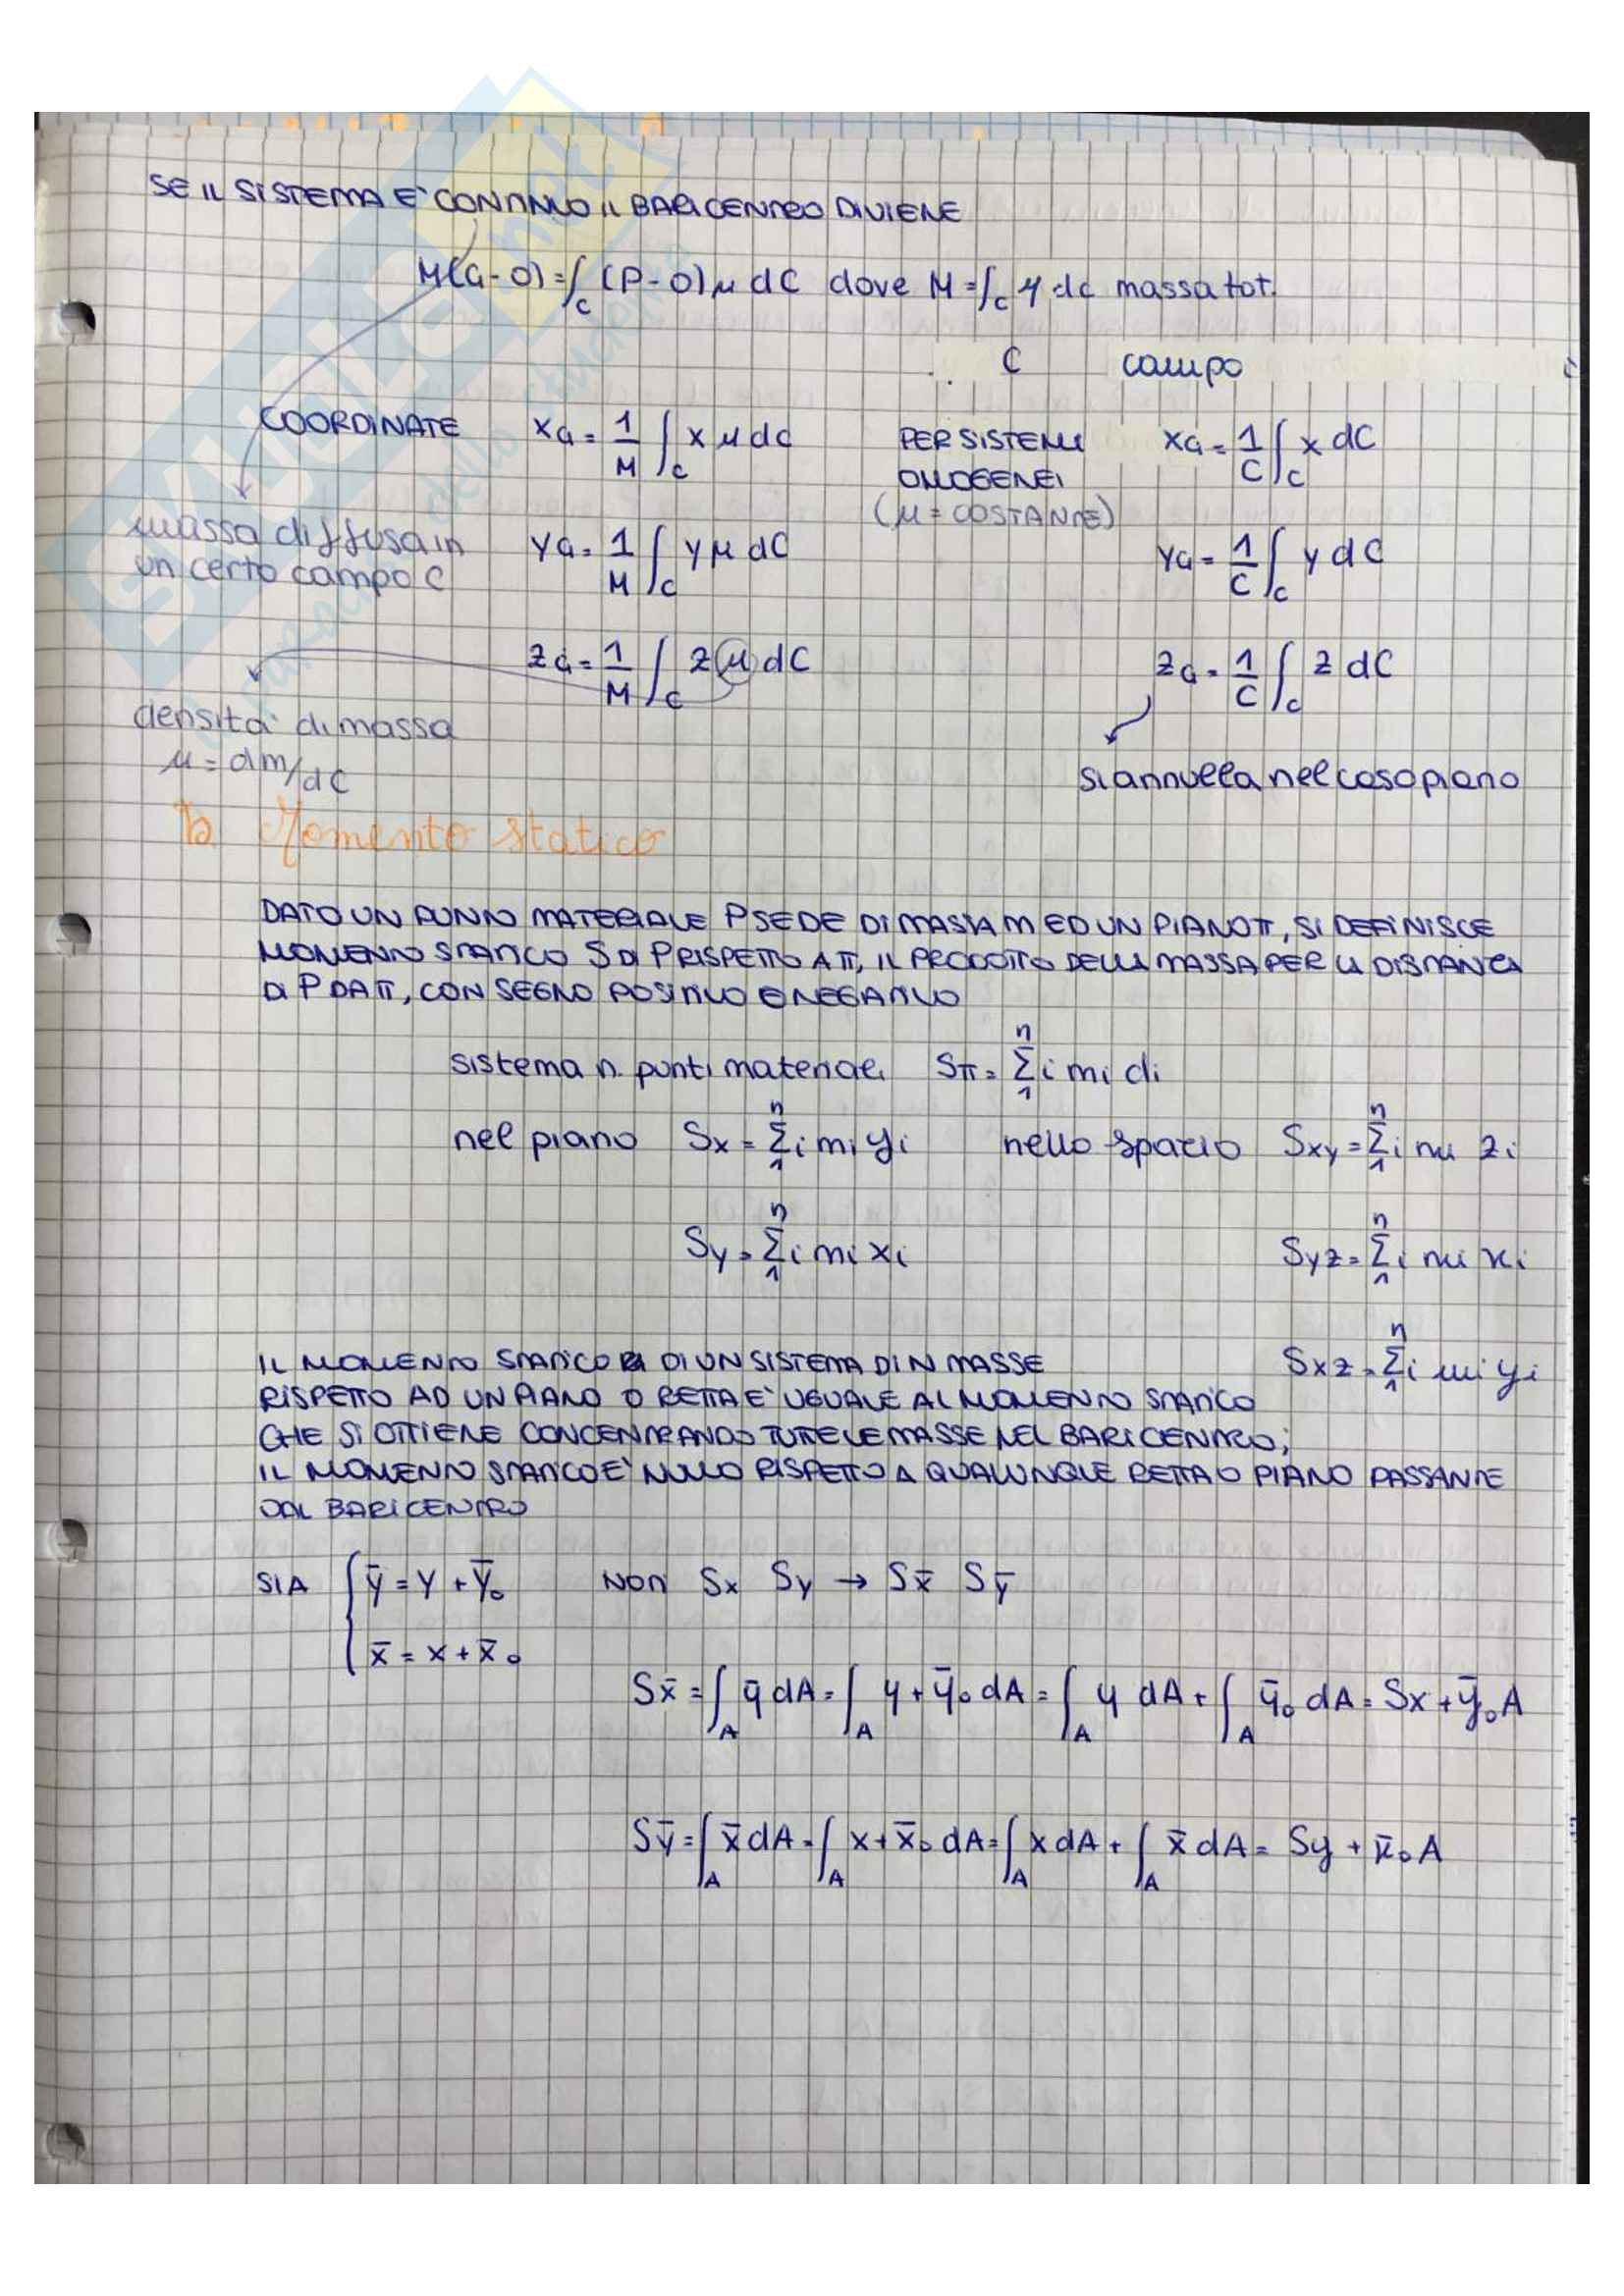 SE IL SISTEMA E' CONTINUO IL BARICENTRO DIVIENE
M(G-O) = ∫_C (P-O) μ dC dove M = ∫_C μ dC massa tot.
C campo
COORDINATE x_G = 1/M ∫_C x μ dC PER SISTEMI OMOGENEI (μ = COSTANTE) x_G = 1/C ∫_C x dC
massa diffusa in
un certo campo C
y_G = 1/M ∫_C y μ dC y_G = 1/C ∫_C y dC
z_G = 1/M ∫_C z μ dC z_G = 1/C ∫_C z dC
densita' di massa
μ = dm/dC
si annulla nel caso piano
b Momento statico
DATO UN PUNTO MATERIALE P SEDE DI MASSA M ED UN PIANO π, SI DEFINISCE
MOMENTO STATICO S DI P RISPETTO A π, IL PRODOTTO DELLA MASSA PER LA DISTANZA
DI P DA π, CON SEGNO POSITIVO O NEGATIVO
sistema n. punti materiali Sπ = Σ_1^n i mi di
nel piano Sx = Σ_1^n i mi yi nello spazio Sxy = Σ_1^n i mi zi
Sy = Σ_1^n i mi xi Syz = Σ_1^n i mi xi
Sxz = Σ_1^n i mi yi
IL MOMENTO STATICO DI UN SISTEMA DI N MASSE
RISPETTO AD UN PIANO O RETTA E' UGUALE AL MOMENTO STATICO
CHE SI OTTIENE CONCENTRANDO TUTTE LE MASSE NEL BARICENTRO;
IL MOMENTO STATICO E' NULLO RISPETTO A QUALUNQUE RETTA O PIANO PASSANTE
DAL BARICENTRO
SIA { ȳ = y + ȳ₀ NON Sx Sy → Sx̄ Sȳ
x̄ = x + x̄₀
Sx̄ = ∫_A ȳ dA = ∫_A y + ȳ₀ dA = ∫_A y dA + ∫_A ȳ₀ dA = Sx + ȳ₀ A
Sȳ = ∫_A x̄ dA = ∫_A x + x̄₀ dA = ∫_A x dA + ∫_A x̄ dA = Sy + x̄₀ A